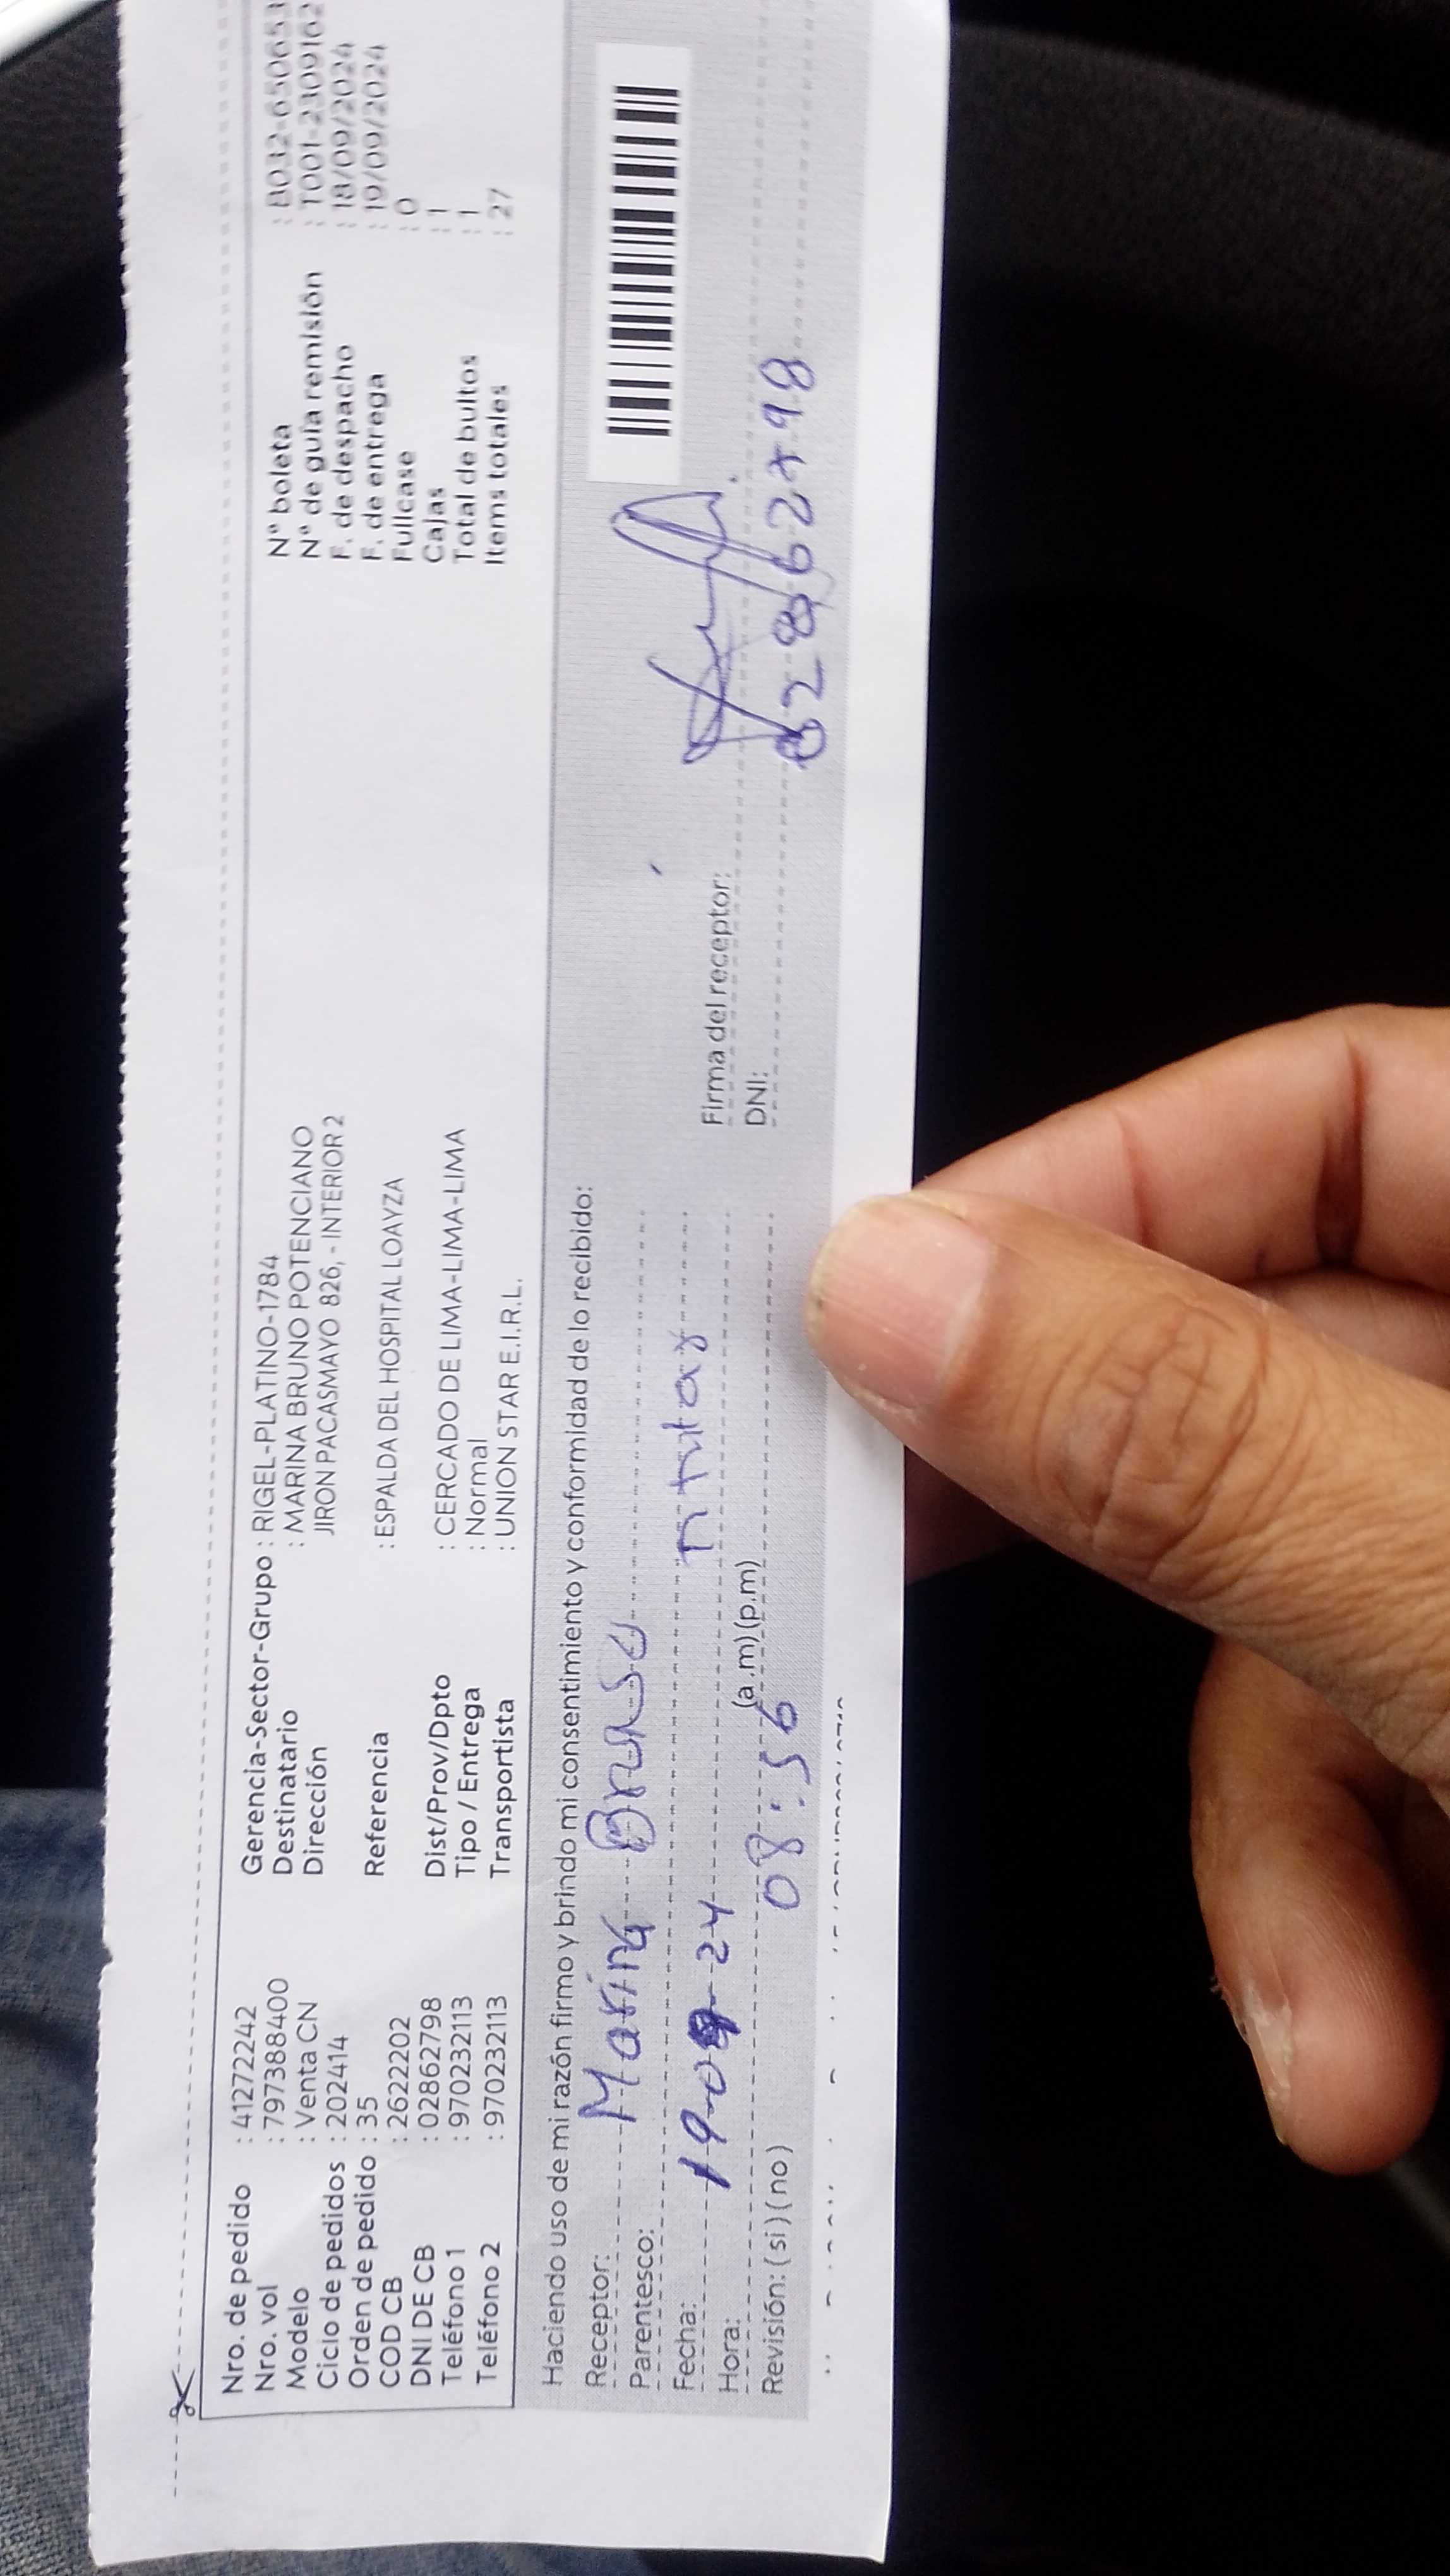 Nro. de pedido : 41272242
Nro. vol : 797388400
Modelo : Venta CN
Ciclo de pedidos : 202414
Orden de pedido : 35
COD CB : 2622202
DNI DE CB : 02862798
Teléfono 1 : 970232113
Teléfono 2 : 970232113
Gerencia-Sector-Grupo : RIGEL-PLATINO-1784
Destinatario : MARINA BRUNO POTENCIANO
Dirección JIRON PACASMAYO 826, - INTERIOR 2
Referencia : ESPALDA DEL HOSPITAL LOAYZA
Dist/Prov/Dpto : CERCADO DE LIMA-LIMA-LIMA
Tipo / Entrega : Normal
Transportista : UNION STAR E.I.R.L.
N° boleta : B032-650653
N° de guía remisión : T001-2309162
F. de despacho : 18/09/2024
F. de entrega : 19/09/2024
Fullcase : 0
Cajas : 1
Total de bultos : 1
Items totales : 27
Haciendo uso de mi razón firmo y brindo mi consentimiento y conformidad de lo recibido:
Receptor: Marina Bruno
Parentesco: titular
Fecha: 19-09-24
Hora: 08:56 (a.m)(p.m)
Revisión: (si) (no)
Firma del receptor:
DNI: 02862798